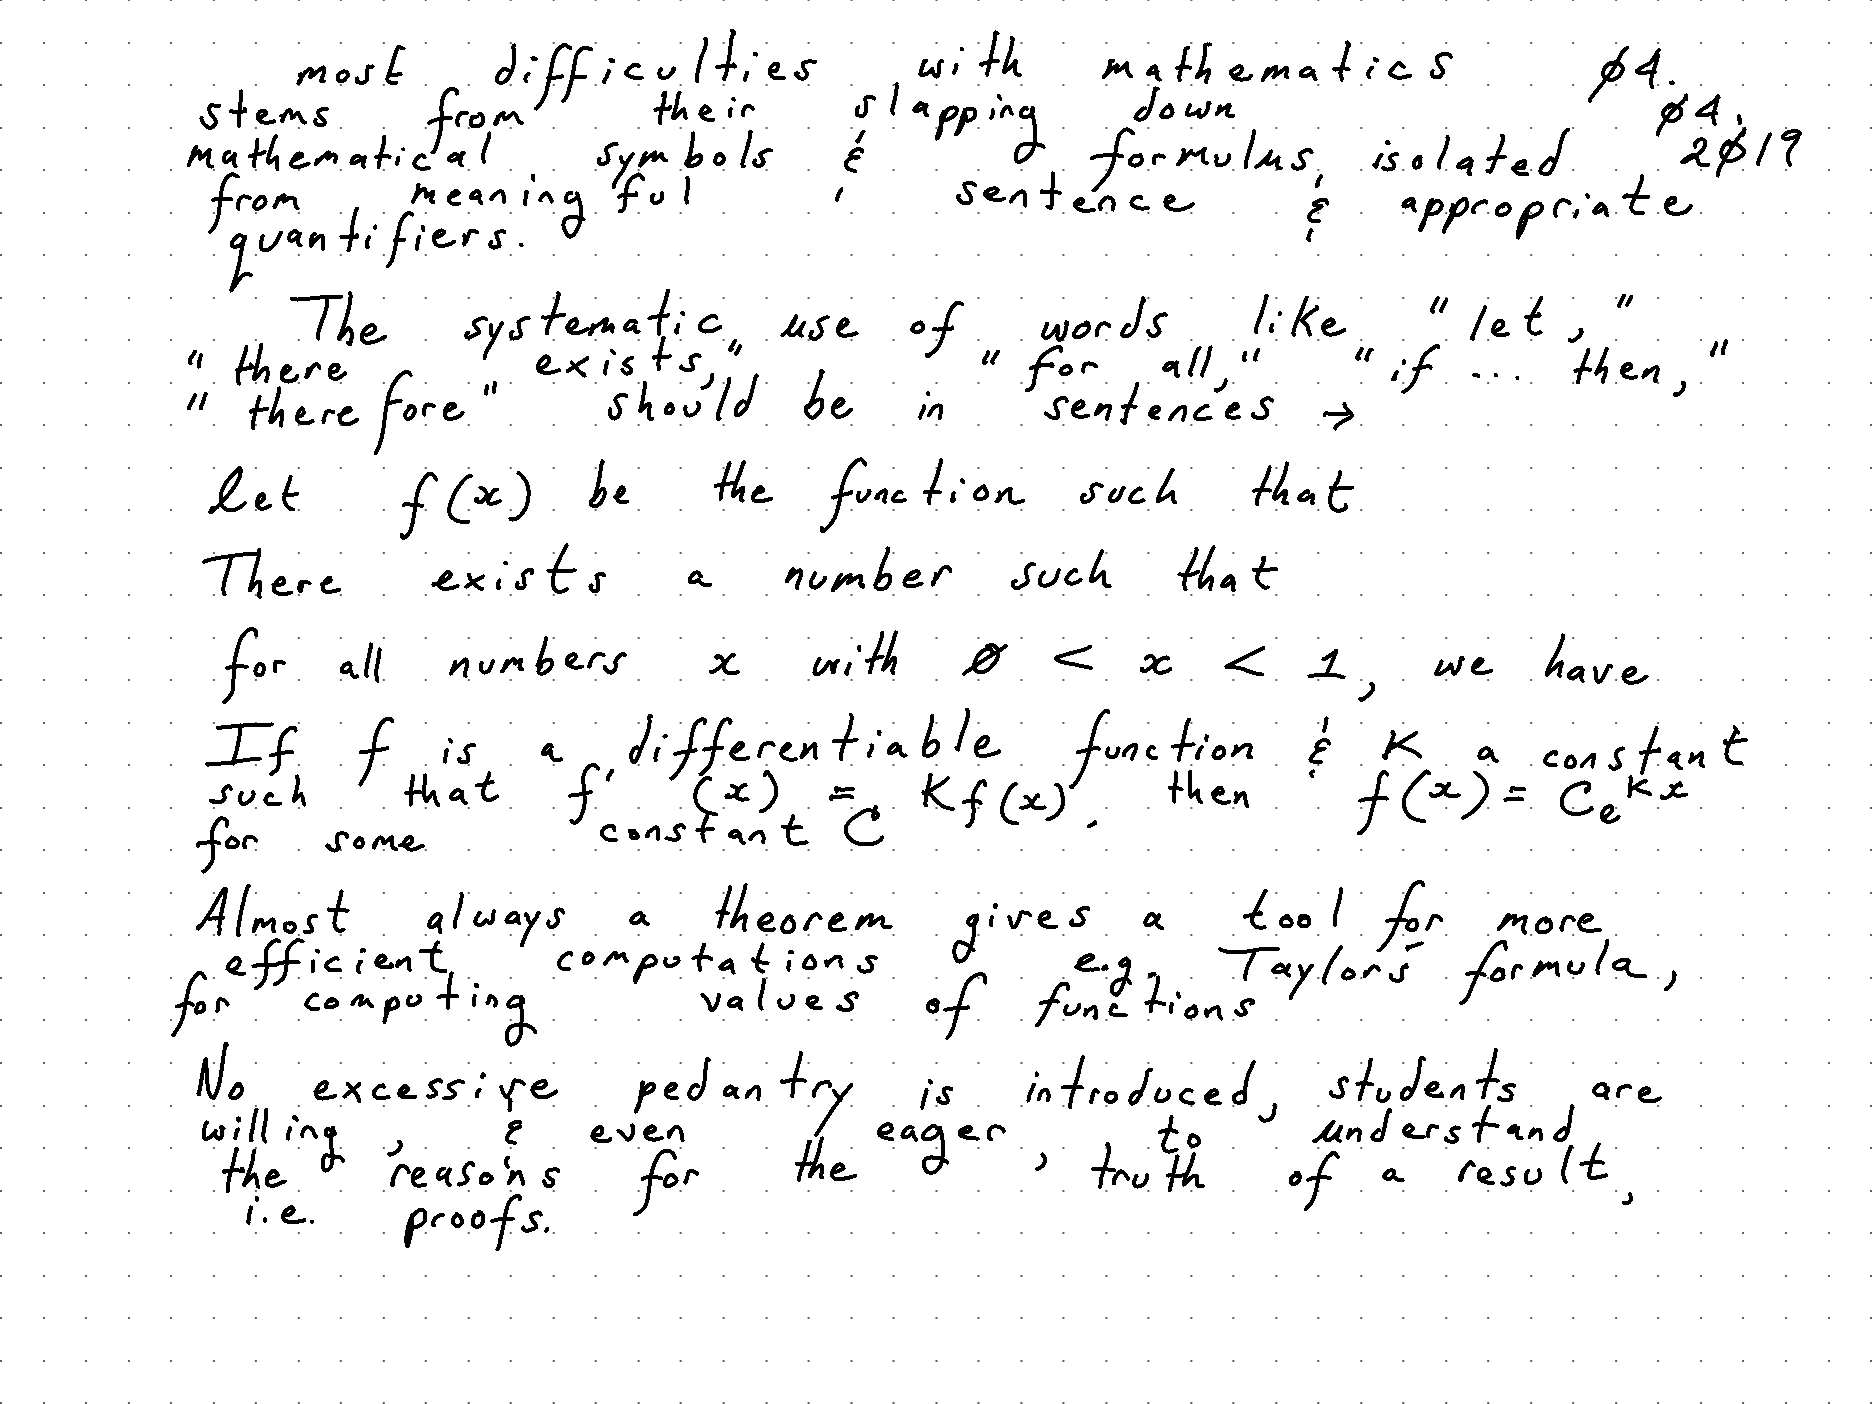 most difficulties with mathematics ø4.
stems from their slapping down ø4.
mathematical symbols & formulus, isolated 2ø19
from meaningful sentence & appropriate
quantifiers.
The systematic use of words like "let,"
"there exists," "for all," "if ... then,"
"therefore" should be in sentences →
let f(x) be the function such that
There exists a number such that
for all numbers x with ø < x < 1, we have
If f is a differentiable function & K a constant
such that f'(x) = Kf(x), then f(x) = Ce^Kx
for some constant C
Almost always a theorem gives a tool for more
efficient computations e.g. Taylor's formula,
for computing values of functions
No excessive pedantry is introduced, students are
willing, & even eager, to understand
the reasons for the truth of a result,
i.e. proofs.